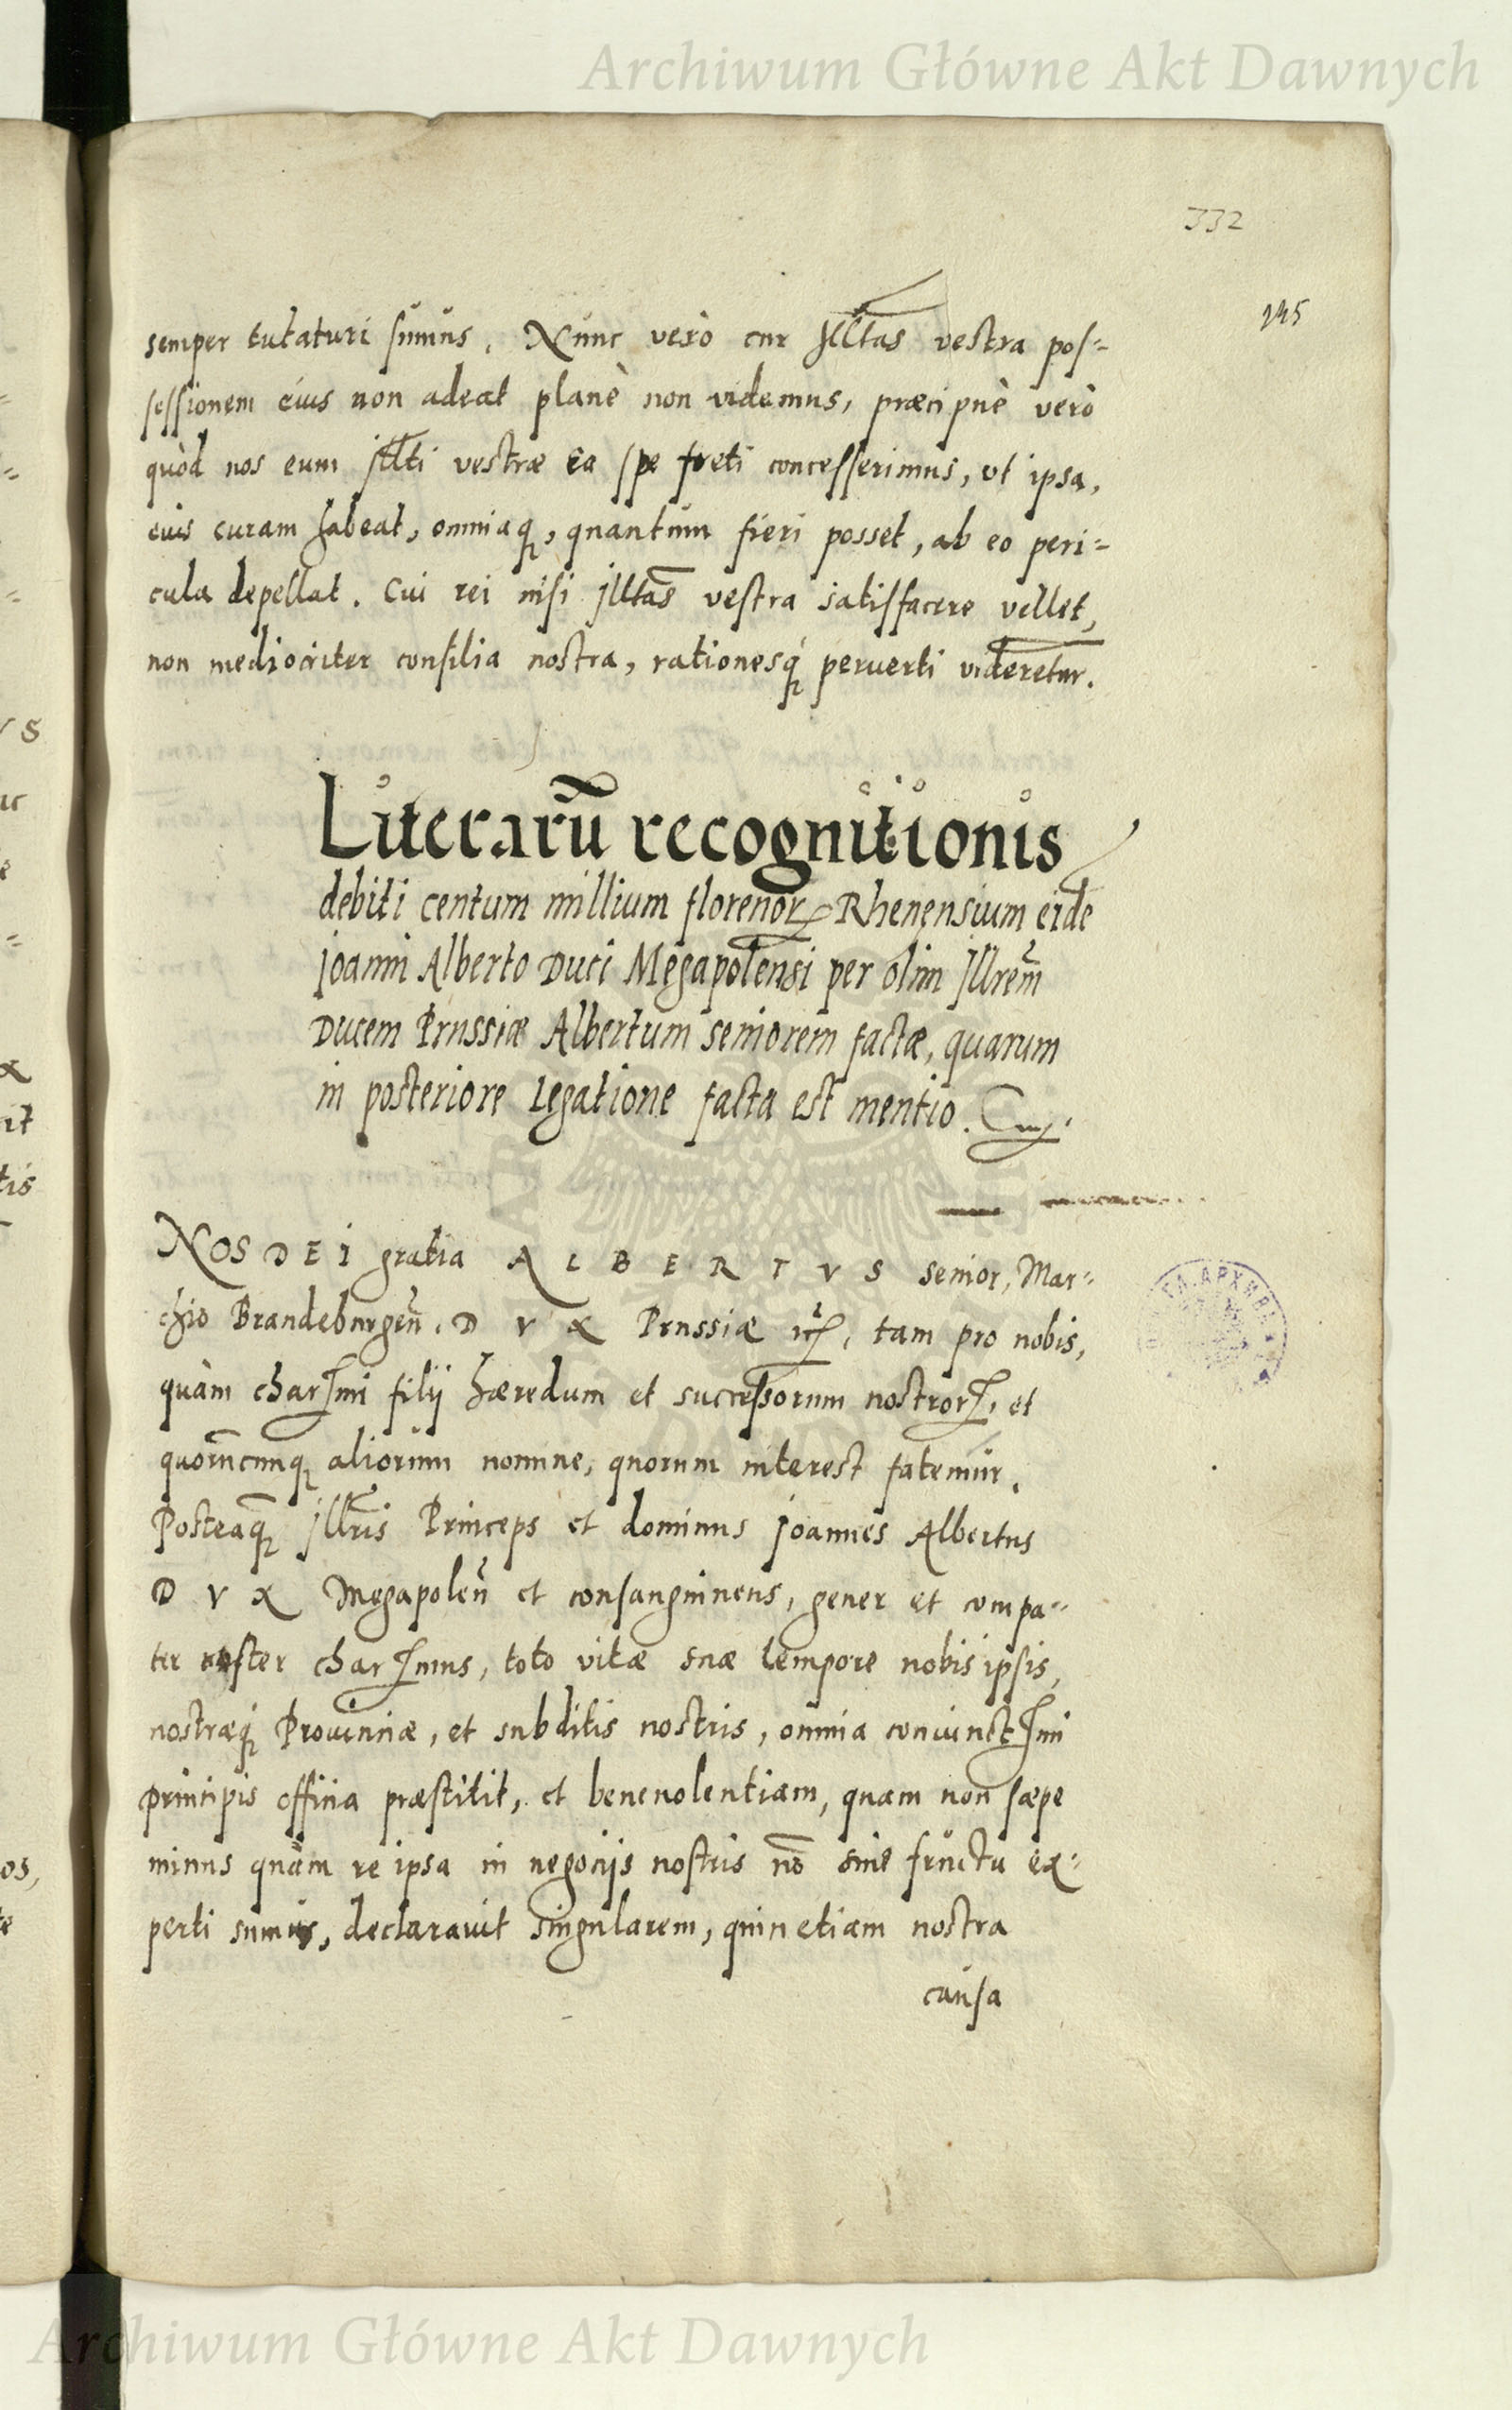 Archiwum Główne Akt Dawnych
332
145
semper tutaturi sumus. Nunc verò cur Jlltas vestra pos=
sessionem eius non adeat planè non videmus, præcipuè verò
quòd nos eum jllti vestræ ea spe freti concesserimus, ut ipsa,
eius curam habeat, omniaq, quantum fieri posset, ab eo peri=
cula depellat. Cui rei nisi jlltas vestra satisfacere vellet,
non mediocriter consilia nostra, rationesq perverti videretur.
Literarū recognitionis
debiti centum millium florenor Rhenensium eidē
joanni Alberto Duci Megapolensi per olim Jllrem
Ducem Prussiæ Albertum seniorem factæ, quarum
in posteriore legatione facta est mentio.
NOS DEI gratia ALBERTVS senior, Mar=
chio Brandeburgeñ. DVX Prussiæ etc, tam pro nobis,
quàm charissimi filij hæredum et successorum nostror, et
quorūcunq aliorum nomine, quorum interest fatemur.
Posteaq̄ jllris Princeps et dominus joannes Albertus
DVX Megapoleñ et consanguineus, gener et compa=
ter noster charissimus, toto vitæ suæ tempore nobis ipsis,
nostræq Provinciæ, et subditis nostris, omnia coniunctissimi
principis officia præstitit, et beneuolentiam, quam non sæpe
minus quàm re ipsa in negocijs nostris nō sine fructu ex=
perti sumus, declaravit singularem, quin etiam nostra
causa
Archiwum Główne Akt Dawnych